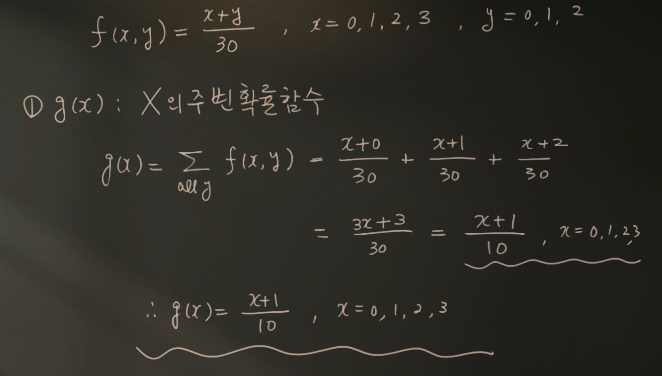 f(x,y) = (x+y)/30 , x = 0, 1, 2, 3 , y = 0, 1, 2
① g(x) : X의 주변확률함수
g(x) = ∑_{all y} f(x,y) = (x+0)/30 + (x+1)/30 + (x+2)/30
= (3x+3)/30 = (x+1)/10 , x = 0, 1, 2, 3
∴ g(x) = (x+1)/10 , x = 0, 1, 2, 3